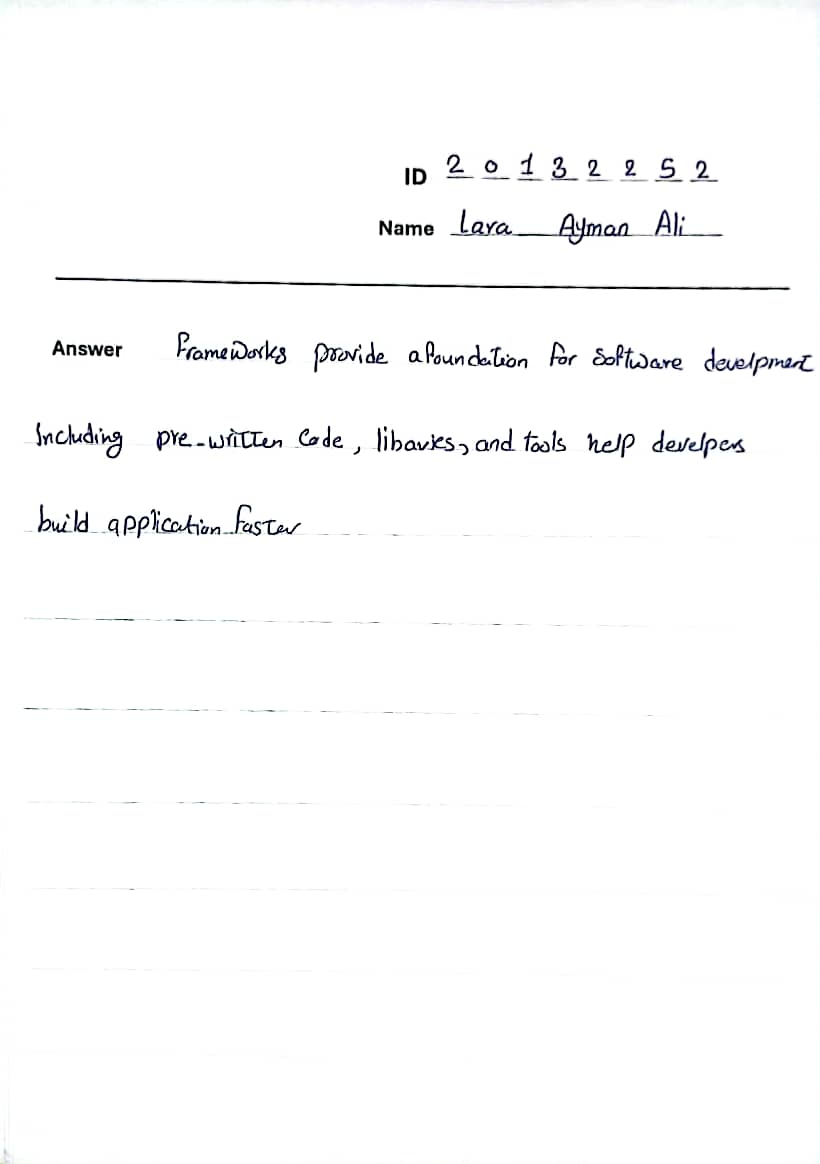 ID 2 0 1 3 2 2 5 2
Name Lara Ayman Ali
Answer frameWorks provide a foundation for Software develpment
Including pre-written Code, libaries, and tools help develpers
build application faster